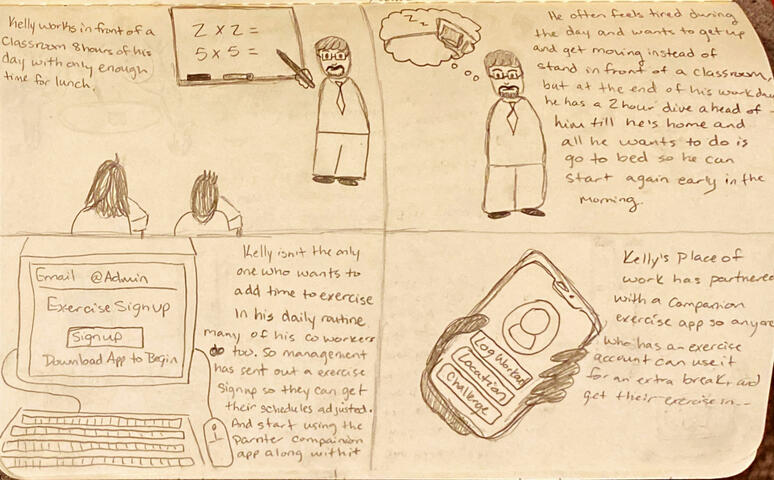 Kelly works in front of a
Classroom 8 hours of his
day with only enough
time for lunch.
2 x 2 =
5 x 5 =
Z Z
He often feels tired during
the day and wants to get up
and get moving instead of
stand in front of a classroom,
but at the end of his work day
he has a 2 hour dive ahead of
him till he's home and
all he wants to do is
go to bed so he can
start again early in the
morning.
Email @Admin
Exercise Signup
Signup
Download App to Begin
Kelly isn't the only
one who wants to
add time to exercise
in his daily routine
many of his coworkers
do too. So management
has sent out a exercise
signup so they can get
their schedules adjusted.
And start using the
Parnter companion
app along with it
Log Workout
Location
Challenge
Kelly's Place of
work has partnered
with a companion
exercise app so anyone
who has an exercise
account can use it
for an extra break and
get their exercise in...